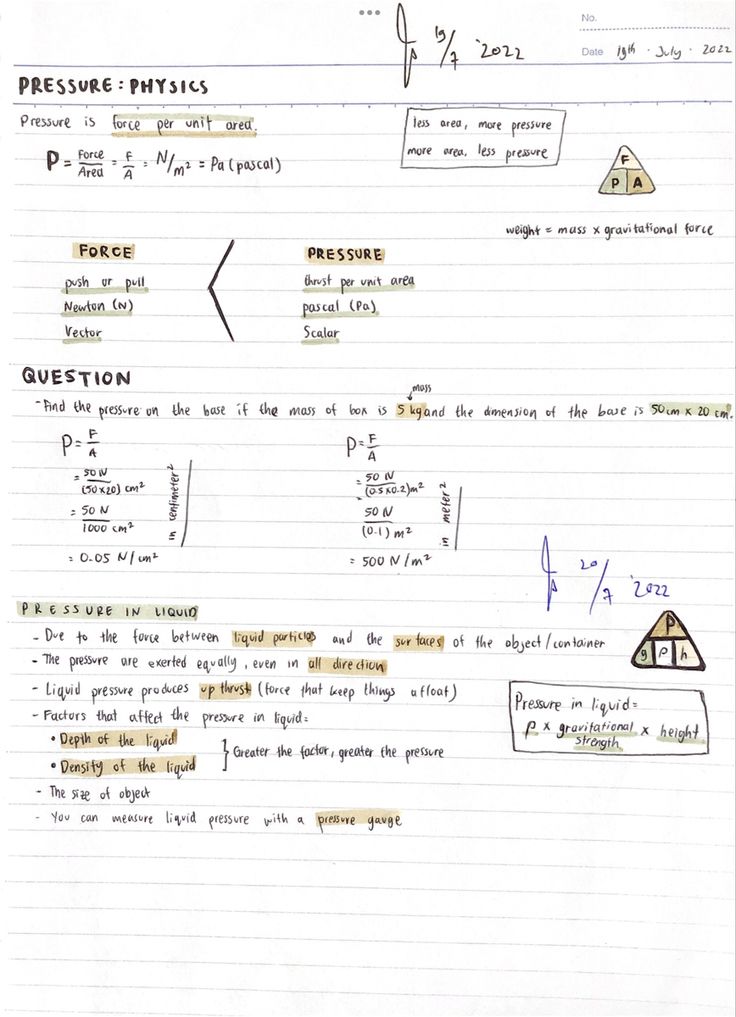 No.
19/7 '2022
Date 19th · July · 2022
PRESSURE : PHYSICS
Pressure is force per unit area.
P = Force/Area = F/A = N/m² = Pa (pascal)
less area, more pressure
more area, less pressure
F
P A
weight = mass x gravitational force
FORCE
push or pull
Newton (N)
Vector
PRESSURE
thrust per unit area
pascal (Pa)
Scalar
QUESTION
mass
- Find the pressure on the base if the mass of box is 5 kg and the dimension of the base is 50 cm x 20 cm.
P = F/A
= 50 N/(50x20) cm²
= 50 N/1000 cm²
= 0.05 N/cm²
in centimeter²
P = F/A
= 50 N/(0.5x0.2)m²
50 N/(0.1) m²
= 500 N/m²
in meter²
20/7 '2022
PRESSURE IN LIQUID
- Due to the force between liquid particles and the surfaces of the object/container
- The pressure are exerted equally, even in all direction
- Liquid pressure produces up thrust (force that keep things afloat)
- Factors that affect the pressure in liquid=
• Depth of the liquid
• Density of the liquid
} Greater the factor, greater the pressure
- The size of object
- You can measure liquid pressure with a pressure gauge
P
g ρ h
Pressure in liquid=
ρ x gravitational strength x height